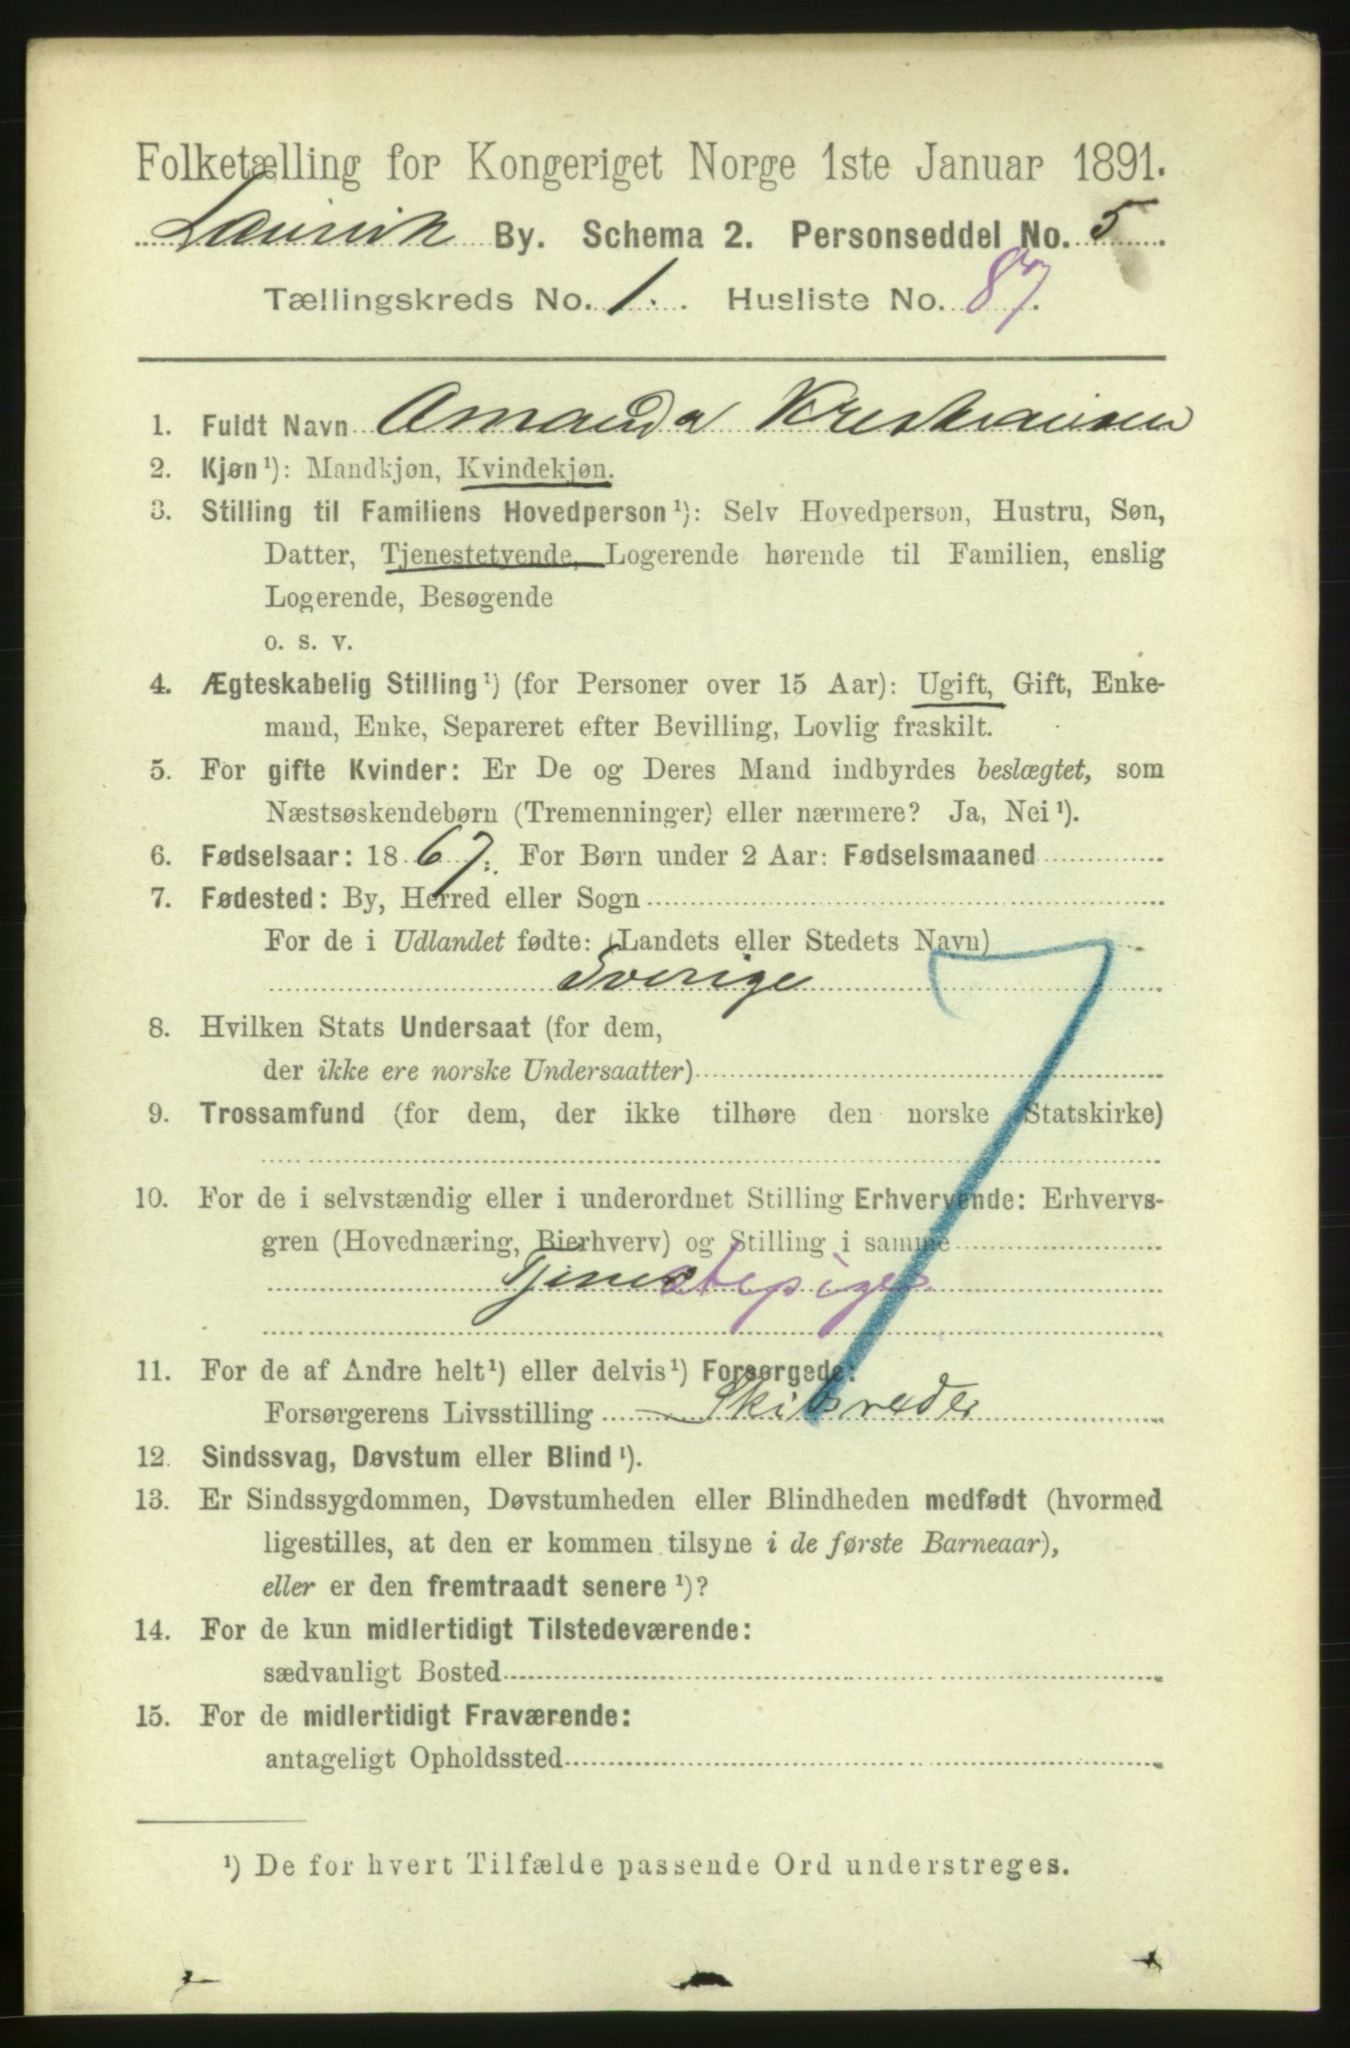 Folketælling for Kongeriget Norge 1ste Januar 1891.
Laurvik By. Schema 2. Personseddel No. 5
Tællingskreds No. 1. Husliste No. 87.
1. Fuldt Navn Amanda Kristiansen
2. Kjøn¹): Mandkjøn, Kvindekjøn.
3. Stilling til Familiens Hovedperson¹): Selv Hovedperson, Hustru, Søn,
Datter, Tjenestetyende, Logerende hørende til Familien, enslig
Logerende, Besøgende
o. s. v.
4. Ægteskabelig Stilling¹) (for Personer over 15 Aar): Ugift, Gift, Enke-
mand, Enke, Separeret efter Bevilling, Lovlig fraskilt.
5. For gifte Kvinder: Er De og Deres Mand indbyrdes beslægtet, som
Næstsøskendebørn (Tremenninger) eller nærmere? Ja, Nei¹).
6. Fødselsaar: 1867. For Børn under 2 Aar: Fødselsmaaned
7. Fødested: By, Herred eller Sogn
For de i Udlandet fødte: (Landets eller Stedets Navn)
Sverige
8. Hvilken Stats Undersaat (for dem,
der ikke ere norske Undersaatter)
9. Trossamfund (for dem, der ikke tilhøre den norske Statskirke)
10. For de i selvstændig eller i underordnet Stilling Erhvervende: Erhvervs-
gren (Hovednæring, Bierhverv) og Stilling i samme
Tjenestepige
11. For de af Andre helt¹) eller delvis¹) Forsørgede:
Forsørgerens Livsstilling Skibsreder
12. Sindssvag, Døvstum eller Blind¹).
13. Er Sindssygdommen, Døvstumheden eller Blindheden medfødt (hvormed
ligestilles, at den er kommen tilsyne i de første Barneaar),
eller er den fremtraadt senere¹)?
14. For de kun midlertidigt Tilstedeværende:
sædvanligt Bosted
15. For de midlertidigt Fraværende:
antageligt Opholdssted
¹) De for hvert Tilfælde passende Ord understreges.